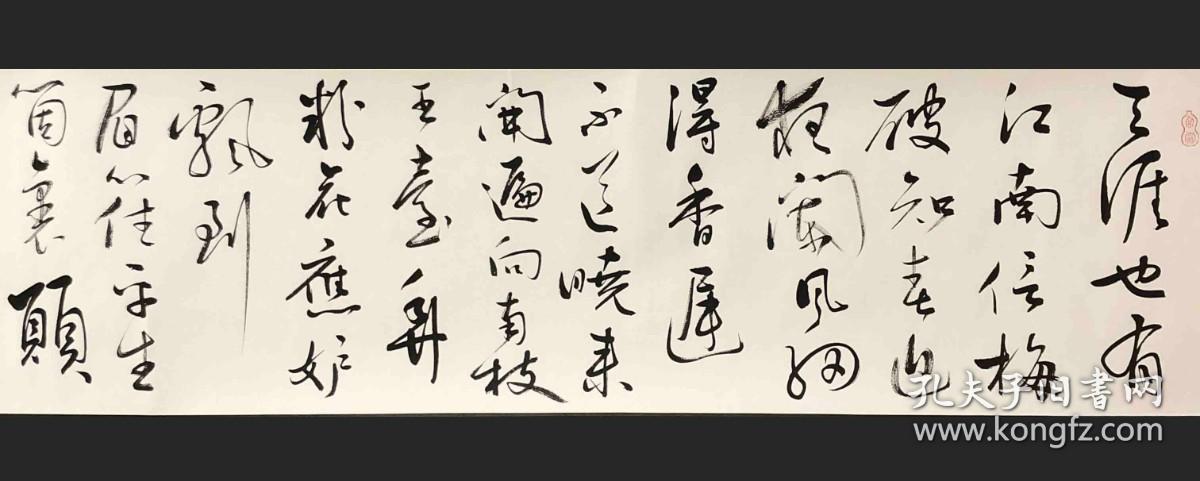 天涯也有
江南信梅
破知春近
夜闌風細
得香遲
不道曉来
開遍向南枝
玉臺弄
粉花應妒
飄到
眉心住平生
箇裏願
孔夫子旧书网
www.kongfz.com